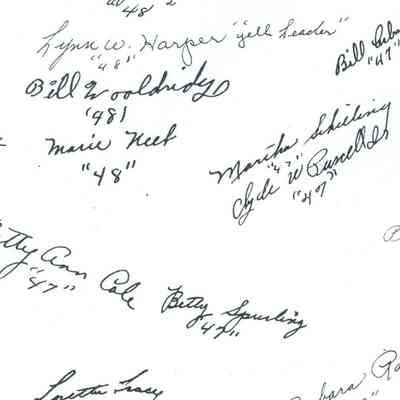 48
Lynn W. Harper "yell Leader"
"48"
Bill
"47"
Bill Wooldridge
'48
Marie Neef
"48"
Martha Schilling
"47"
Clyde W
"47"
Betty Ann Cole
"47"
Betty Spurling
47"
Loretta Tracy